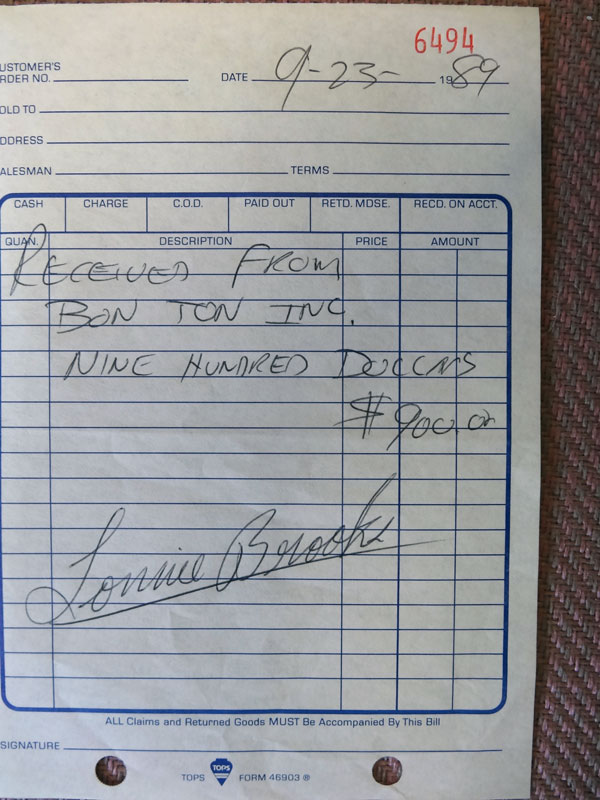 6494
USTOMER'S
RDER NO. DATE 9-23- 1989
OLD TO
DDRESS
ALESMAN TERMS
CASH CHARGE C.O.D. PAID OUT RETD. MDSE. RECD. ON ACCT.
QUAN. DESCRIPTION PRICE AMOUNT
RECEIVED FROM
BON TON INC.
NINE HUNDRED DOLLARS
$900.00
Lonnie Brooks
ALL Claims and Returned Goods MUST Be Accompanied By This Bill
SIGNATURE
TOPS TOPS FORM 46903 ®